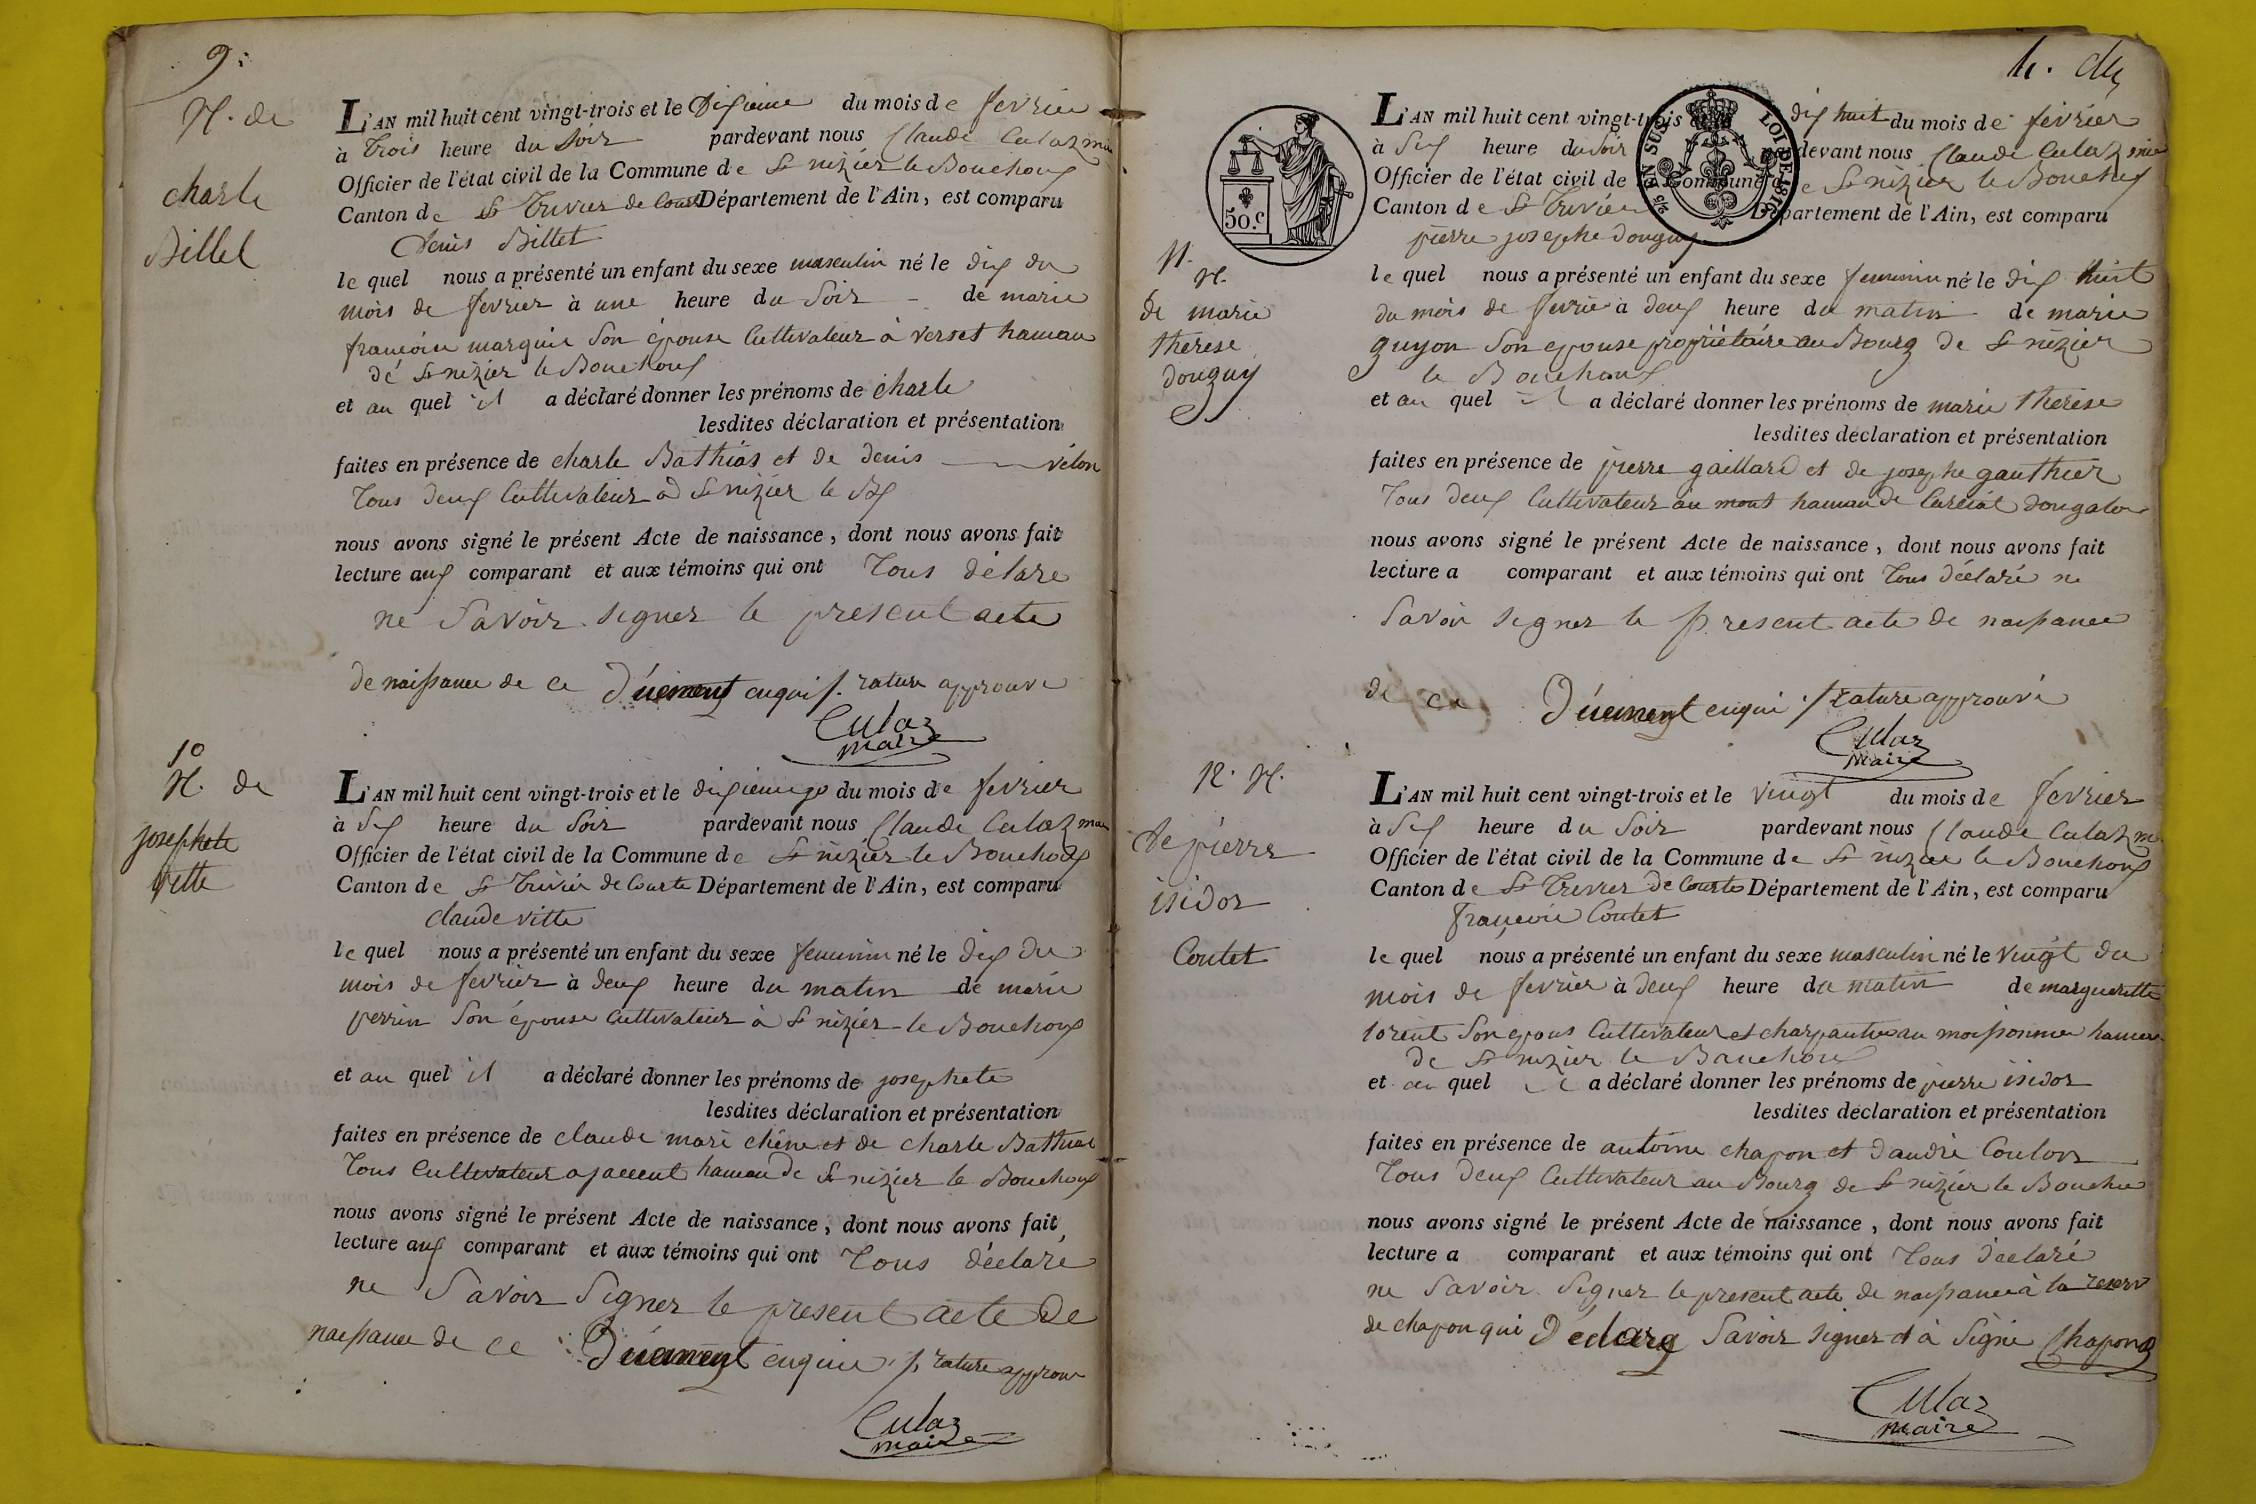 9:
N. de
charle
Billet
L'AN mil huit cent vingt-trois et le Dixieme du mois de fevrier
à trois heure du soir pardevant nous Claude Culaz
Officier de l'état civil de la Commune de St nizier le Bouchoux
Canton de St Trivier de Courte Département de l'Ain, est comparu
Denis Billet
le quel nous a présenté un enfant du sexe masculin né le dix du
mois de fevrier à une heure du soir - de marie
françoise son épouse Cultivateur à verset hameau
de St nizier le Bouchoux
et au quel il a déclaré donner les prénoms de charle
lesdites déclaration et présentation
faites en présence de charle Bathias et de denis vélon
Tous deux Cultivateur à St nizier le Bx
nous avons signé le présent Acte de naissance, dont nous avons fait
lecture aux comparant et aux témoins qui ont Tous délaré
ne savoir signer le present acte
de naissance de ce rature approuvé
Culaz
maire
10
N. de
josephete
vitte
L'AN mil huit cent vingt-trois et le du mois de fevrier
à Six heure du soir pardevant nous Claude Culaz
Officier de l'état civil de la Commune de St nizier le Bouchoux
Canton de St Trivier de Courte Département de l'Ain, est comparu
claude vitte
le quel nous a présenté un enfant du sexe feminin né le dix du
mois de fevrier à deux heure du matin de marie
perrin son épouse Cultivateur à St nizier le Bouchoux
et au quel il a déclaré donner les prénoms de josephete
lesdites déclaration et présentation
faites en présence de claude marie chêne et de charle Bathias
Tous Cultivateur hameau de St nizier le Bouchoux
nous avons signé le présent Acte de naissance, dont nous avons fait
lecture aux comparant et aux témoins qui ont Tous déclaré
ne Savoir Signer le present acte de
naissance de ce rature
Culaz
maire
50.c
EN SUS
LOI DE 1816
11.
N.
de marie
therese
douguy
L'AN mil huit cent vingt-trois dix huit du mois de février
à Six heure du soir pardevant nous Claude Culaz
Officier de l'état civil de la Commune de St nizier le Bouchoux
Canton de St Trivier Département de l'Ain, est comparu
pierre josephe douguy
le quel nous a présenté un enfant du sexe feminin né le dix huit
du mois de fevrier à deux heure du matin de marie
guyon son epouse propriétaire au Bourg de St nizier
le Bouchoux
et au quel il a déclaré donner les prénoms de marie therese
lesdites déclaration et présentation
faites en présence de pierre gaillard et de josephe gauthier
Tous deux Cultivateur au mont hameau de Curciat dongalon
nous avons signé le présent Acte de naissance, dont nous avons fait
lecture a comparant et aux témoins qui ont Tous déclaré ne
savoir signer le present acte de naissance
de ce rature approuvé
Culaz
maire
12. N.
de pierre
isidor
Coutet
L'AN mil huit cent vingt-trois et le vingt du mois de fevrier
à Six heure du soir pardevant nous Claude Culaz
Officier de l'état civil de la Commune de St nizier le Bouchoux
Canton de St Trivier de Courtes Département de l'Ain, est comparu
françois Coutet
le quel nous a présenté un enfant du sexe masculin né le vingt du
mois de fevrier à deux heure du matin de margueritte
lorent son epous Cultivateur et charpantier au hameau
de St nizier le Bouchoux
et au quel il a déclaré donner les prénoms de pierre isidor
lesdites déclaration et présentation
faites en présence de antoine chapon et d'andré Coulon
Tous deux Cultivateur au Bourg de St nizier le Bouchoux
nous avons signé le présent Acte de naissance, dont nous avons fait
lecture a comparant et aux témoins qui ont Tous déclaré
ne savoir signer le present acte de naissance à la reserv
de chapon qui déclare savoir signer et à signé Chapon
Culaz
maire